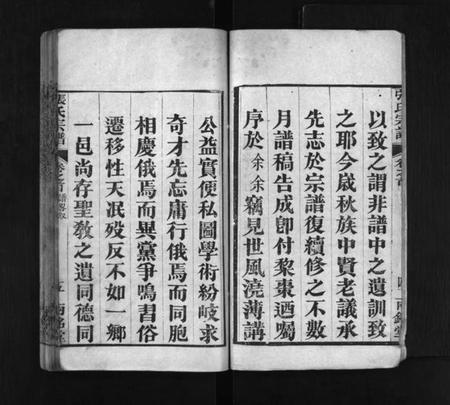 以致之謂非譜中之遺訓致
之耶今歲秋族中賢老議承
先志於宗譜復續修之不數
月譜稿告成即付黎棗迺囑
序於余余竊見世風澆薄講
公益實便私圖學術紛岐求
奇才先忘庸行俄焉而同胞
相慶俄焉而異黨爭鳴書俗
遷移性天泯歿反不如一鄉
一邑尚存聖教之遺同德同
張氏宗譜
卷之首
五